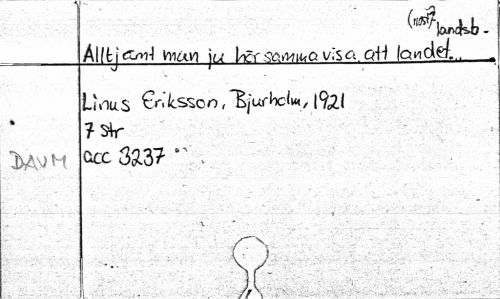 landsb.
Alltjämt man ju hör samma visa, att landet...
Linus Eriksson, Bjurholm, 1921
7 str
DAUM acc 3237